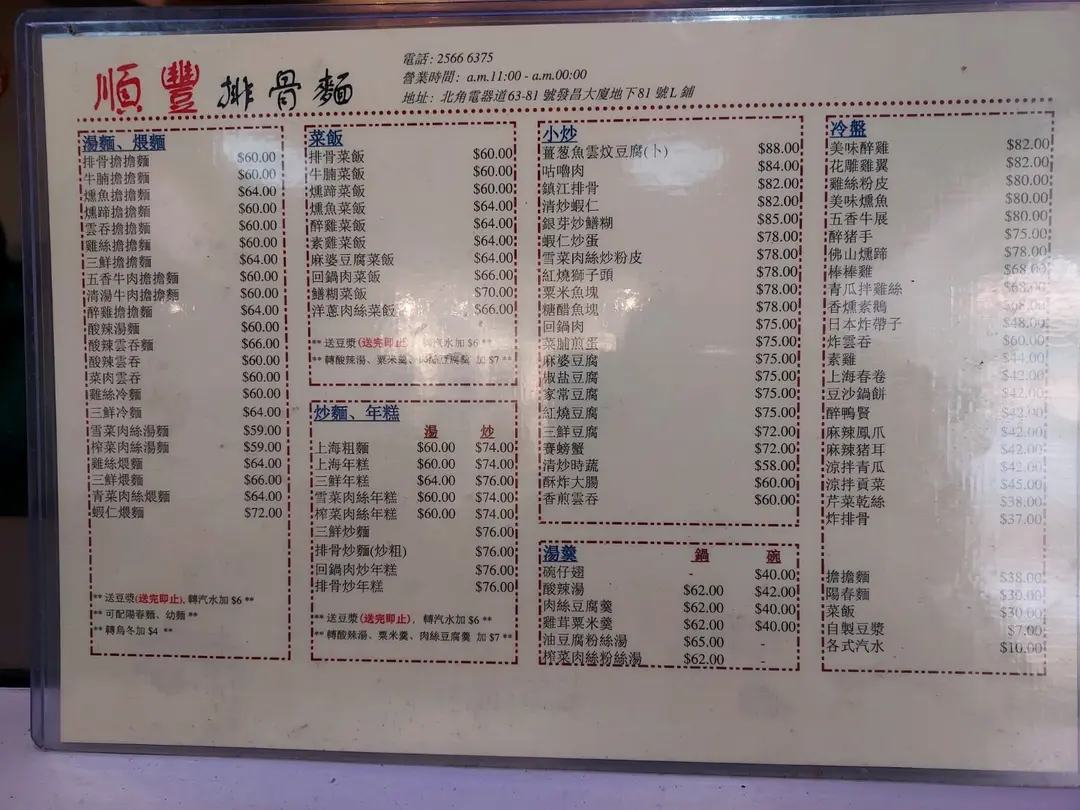 順豐排骨麵
電話: 2566 6375
營業時間: a.m.11:00 - a.m.00:00
地址: 北角電器道63-81 號發昌大廈地下81 號L 鋪
湯麵、煨麵
排骨擔擔麵 $60.00
牛腩擔擔麵 $60.00
燻魚擔擔麵 $64.00
燻蹄擔擔麵 $60.00
雲吞擔擔麵 $60.00
雞絲擔擔麵 $60.00
三鮮擔擔麵 $64.00
五香牛肉擔擔麵 $60.00
清湯牛肉擔擔麵 $60.00
醉雞擔擔麵 $64.00
酸辣湯麵 $60.00
酸辣雲吞麵 $66.00
酸辣雲吞 $60.00
菜肉雲吞 $60.00
雞絲冷麵 $60.00
三鮮冷麵 $64.00
雪菜肉絲湯麵 $59.00
榨菜肉絲湯麵 $59.00
雞絲煨麵 $64.00
三鮮煨麵 $66.00
青菜肉絲煨麵 $64.00
蝦仁煨麵 $72.00
** 送豆漿(送完即止), 轉汽水加 $6 **
** 可配陽春麵、幼麵 **
** 轉烏冬加 $4 **
菜飯
排骨菜飯 $60.00
牛腩菜飯 $60.00
燻蹄菜飯 $60.00
燻魚菜飯 $64.00
醉雞菜飯 $64.00
素雞菜飯 $64.00
麻婆豆腐菜飯 $64.00
回鍋肉菜飯 $66.00
鱔糊菜飯 $70.00
洋蔥肉絲菜飯 $66.00
** 送豆漿(送完即止), 轉汽水加 $6 **
** 轉酸辣湯、粟米羹、肉絲豆腐羹 加 $7 **
炒麵、年糕
湯 炒
上海粗麵 $60.00 $74.00
上海年糕 $60.00 $74.00
三鮮年糕 $64.00 $76.00
雪菜肉絲年糕 $60.00 $74.00
榨菜肉絲年糕 $60.00 $74.00
三鮮炒麵 $76.00
排骨炒麵(炒粗) $76.00
回鍋肉炒年糕 $76.00
排骨炒年糕 $76.00
** 送豆漿(送完即止), 轉汽水加 $6 **
** 轉酸辣湯、粟米羹、肉絲豆腐羹 加 $7 **
小炒
薑葱魚雲炆豆腐(卜) $88.00
咕嚕肉 $84.00
鎮江排骨 $82.00
清炒蝦仁 $82.00
銀芽炒鱔糊 $85.00
蝦仁炒蛋 $78.00
雪菜肉絲炒粉皮 $78.00
紅燒獅子頭 $78.00
粟米魚塊 $78.00
糖醋魚塊 $78.00
回鍋肉 $75.00
菜脯煎蛋 $75.00
麻婆豆腐 $75.00
椒鹽豆腐 $75.00
家常豆腐 $75.00
紅燒豆腐 $75.00
三鮮豆腐 $72.00
賽螃蟹 $72.00
清炒時蔬 $58.00
酥炸大腸 $60.00
香煎雲吞 $60.00
湯羹
鍋 碗
碗仔翅 - $40.00
酸辣湯 $62.00 $42.00
肉絲豆腐羹 $62.00 $40.00
雞茸粟米羹 $62.00 $40.00
油豆腐粉絲湯 $65.00 -
榨菜肉絲粉絲湯 $62.00 -
冷盤
美味醉雞 $82.00
花雕雞翼 $82.00
雞絲粉皮 $80.00
美味燻魚 $80.00
五香牛展 $80.00
醉豬手 $75.00
佛山燻蹄 $78.00
棒棒雞 $68.00
青瓜拌雞絲 $68.00
香燻素鵝 $68.00
日本炸帶子 $48.00
炸雲吞 $60.00
素雞 $44.00
上海春卷 $42.00
豆沙鍋餅 $42.00
醉鴨腎 $42.00
麻辣鳳爪 $42.00
麻辣豬耳 $42.00
涼拌青瓜 $42.00
涼拌貢菜 $45.00
芹菜乾絲 $38.00
炸排骨 $37.00
擔擔麵 $38.00
陽春麵 $30.00
菜飯 $30.00
自製豆漿 $7.00
各式汽水 $10.00